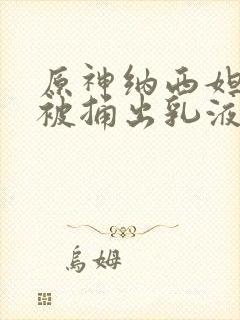 原神纳西妲
被捅出乳液
烏姆